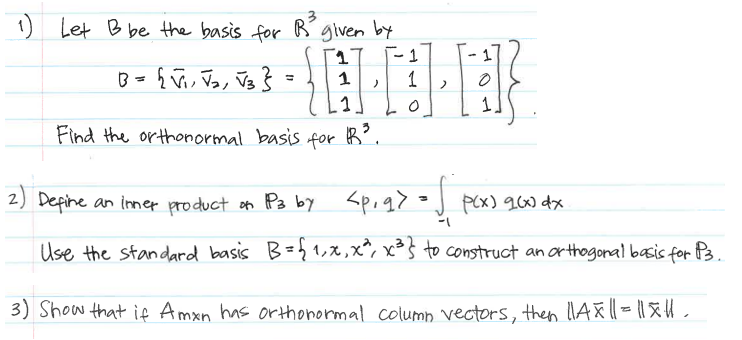 1) Let B be the basis for ℝ³ given by
B = { v̄₁, v̄₂, v̄₃ } = { [1 1 1], [-1 1 0], [-1 0 1] }.
Find the orthonormal basis for ℝ³.
2) Define an inner product on ℙ₃ by <p,q> = ∫₋₁ p(x) q(x) dx
Use the standard basis B = { 1, x, x², x³ } to construct an orthogonal basis for ℙ₃.
3) Show that if Amxn has orthonormal column vectors, then ||Ax̄|| = ||x̄||.